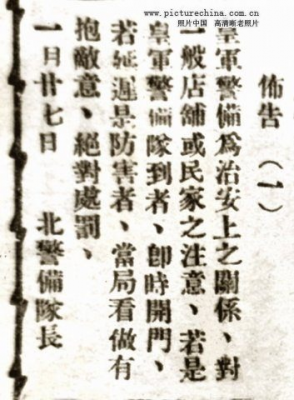 www.picturechina.com.cn
照片中国 高清晰老照片
佈告（一）
皇軍警備爲治安上之關係、對
一般店舖或民家之注意、若是
皇軍警備隊到者、卽時開門、
若延遲是防害者、當局看做有
抱敵意、絕對處罰、
一日廿七日 北警備隊長